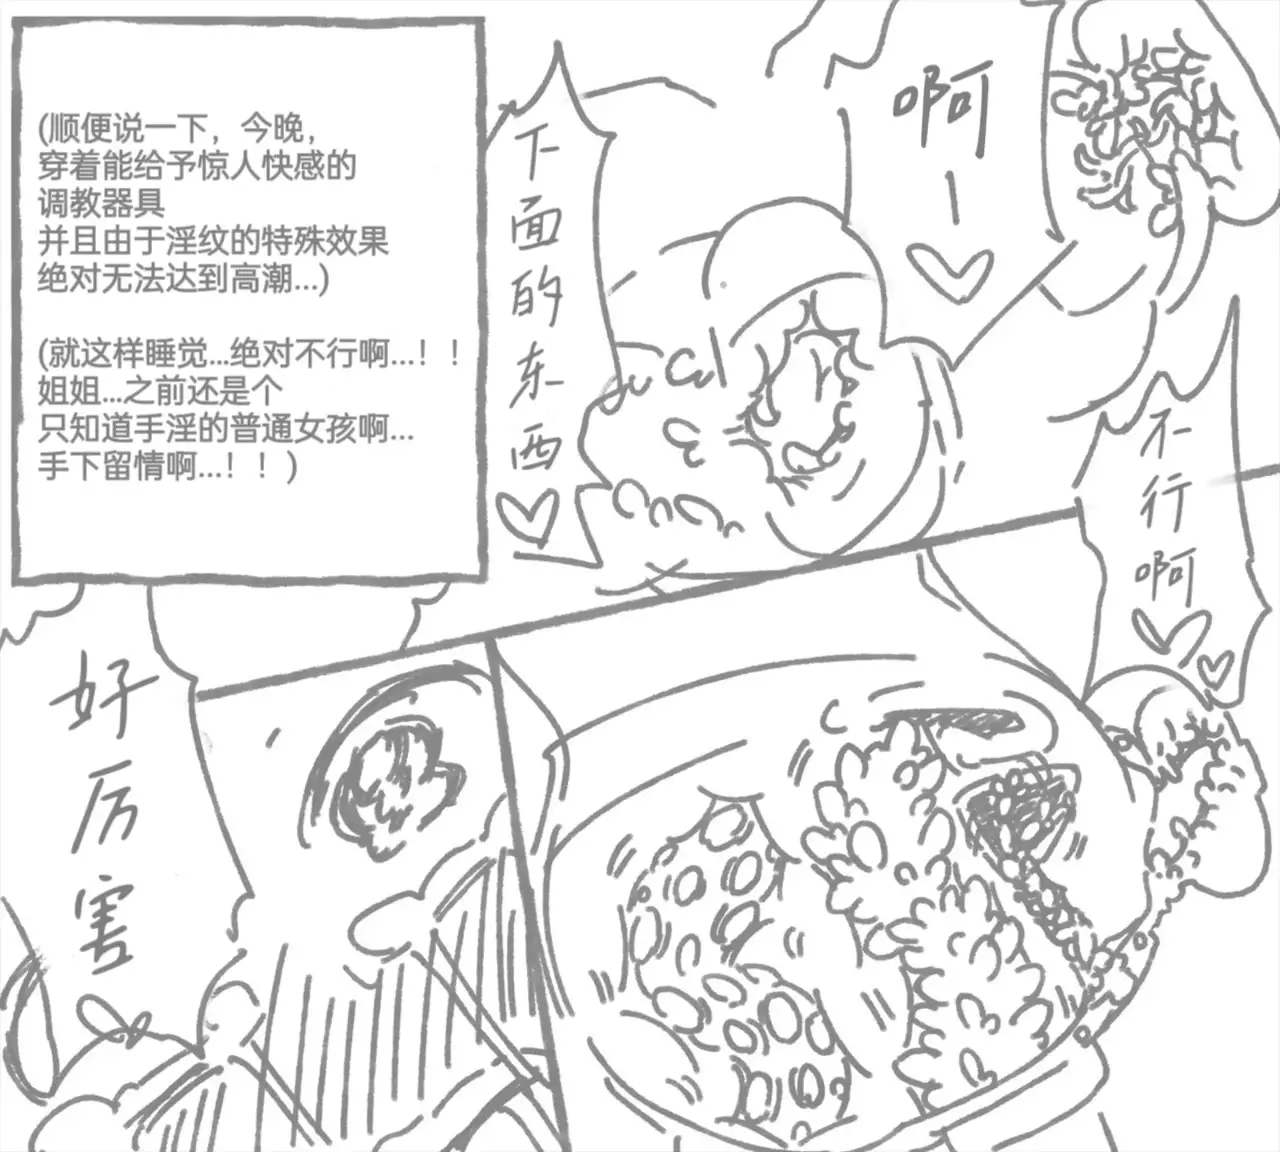 (顺便说一下，今晚，
穿着能给予惊人快感的
调教器具
并且由于淫纹的特殊效果
绝对无法达到高潮...)
(就这样睡觉...绝对不行啊...！！
姐姐...之前还是个
只知道手淫的普通女孩啊...
手下留情啊...！！)
下面的东西♡
啊ー♡
不行啊♡♡
好厉害♡